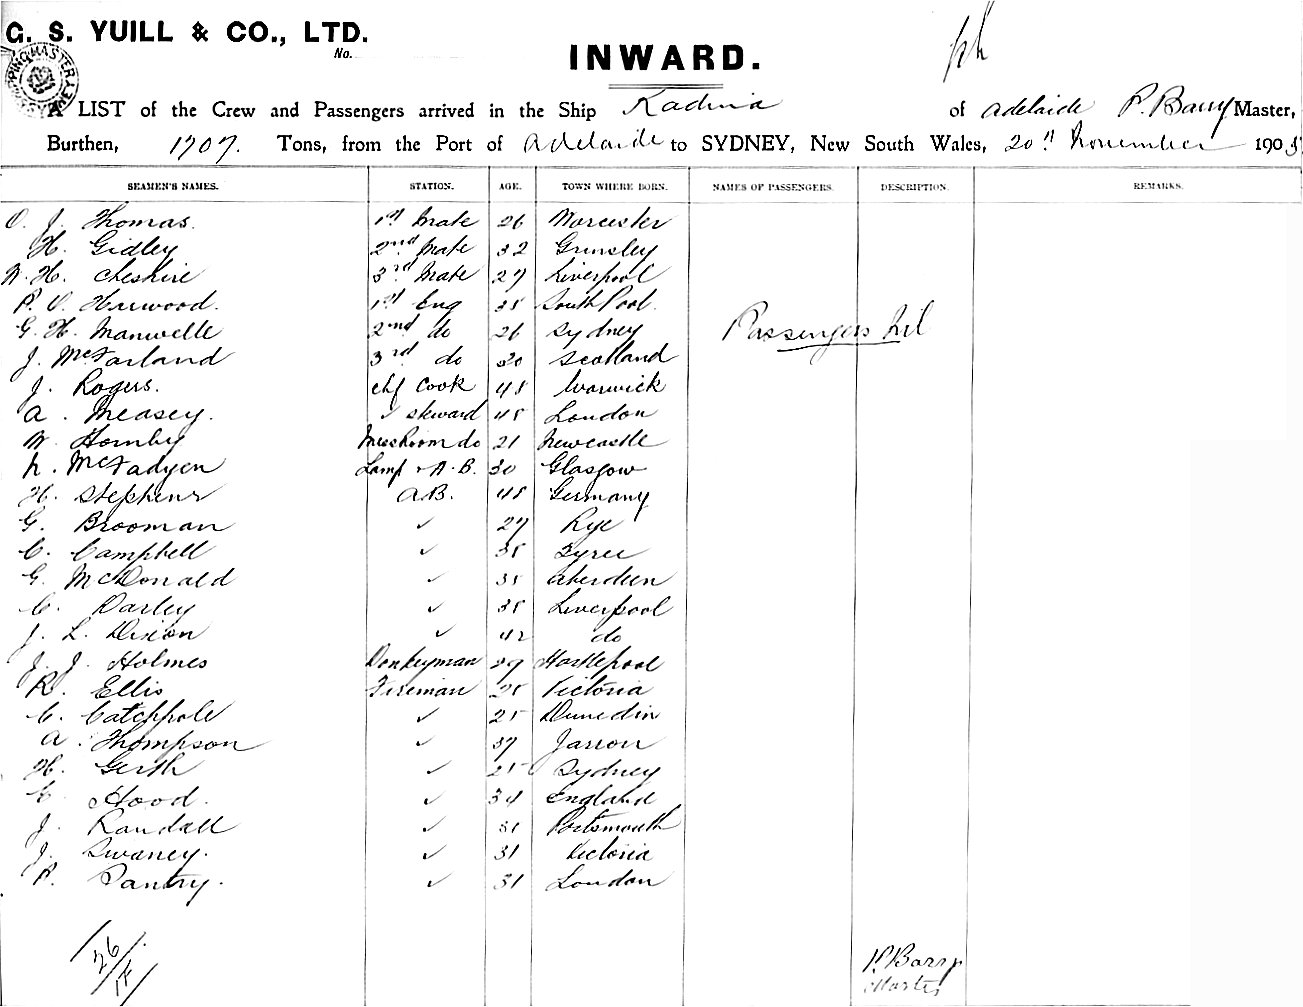 G. S. YUILL & CO., LTD.
No.
INWARD.
A LIST of the Crew and Passengers arrived in the Ship Kadina of Adelaide P. Barry Master,
Burthen, 1707. Tons, from the Port of Adelaide to SYDNEY, New South Wales, 20th November 1905
SEAMEN'S NAMES. STATION. AGE. TOWN WHERE BORN. NAMES OF PASSENGERS. DESCRIPTION. REMARKS.
O. J. Thomas. 1st Mate 26 Worcester
H. Gidley 2nd Mate 32 Grimsley
W. H. Cheshire 3rd Mate 27 Liverpool
P. O. Harwood. 1st Eng 35 South Pool.
G. H. Manwelle 2nd do 26 Sydney
Passengers Nil
J. McFarland 3rd do 30 Scotland
J. Rogers. chf Cook 45 Warwick
A. Measey. ✓ Steward 45 London
W. Hornby Messroom do 21 Newcastle
N. McFadyen Lamp & A.B. 30 Glasgow
H. Stephens A.B. 45 Germany
G. Brooman ✓ 27 Rye
C. Campbell ✓ 35 Tyree
G. McDonald ✓ 35 Aberdeen
C. Darley ✓ 35 Liverpool
J. L. Dixon ✓ 42 do
J. J. Holmes Donkeyman 29 Hartlepool
R. Ellis Fireman 25 Victoria
C. Catchpole ✓ 25 Dunedin
A. Thompson ✓ 37 Jarrow
H. Gerth ✓ 25 Sydney
E. Hood. ✓ 34 England
J. Randall ✓ 31 Portsmouth
J. Swaney. ✓ 31 Victoria
P. Santry. ✓ 31 London
26
P. Barry
Master